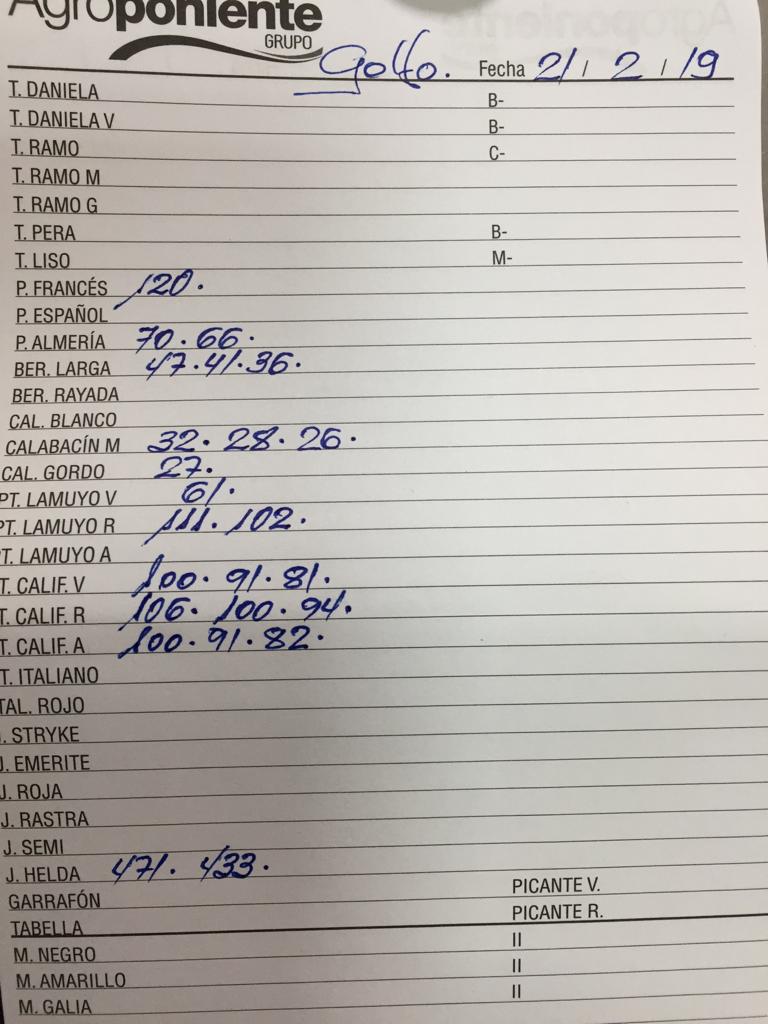 Agroponiente
GRUPO
Golfo. Fecha 21 / 2 / 19
T. DANIELA B-
T. DANIELA V B-
T. RAMO C-
T. RAMO M
T. RAMO G
T. PERA B-
T. LISO M-
P. FRANCÉS 120.
P. ESPAÑOL
P. ALMERÍA 70. 66.
BER. LARGA 47. 41. 36.
BER. RAYADA
CAL. BLANCO
CALABACÍN M 32. 28. 26.
CAL. GORDO 27.
PT. LAMUYO V 61.
PT. LAMUYO R 111. 102.
PT. LAMUYO A
T. CALIF. V 100. 91. 81.
T. CALIF. R 106. 100. 94.
T. CALIF. A 100. 91. 82.
T. ITALIANO
TAL. ROJO
. STRYKE
J. EMERITE
J. ROJA
J. RASTRA
J. SEMI
J. HELDA 471. 433.
GARRAFÓN PICANTE V.
TABELLA PICANTE R.
M. NEGRO II
M. AMARILLO II
M. GALIA II